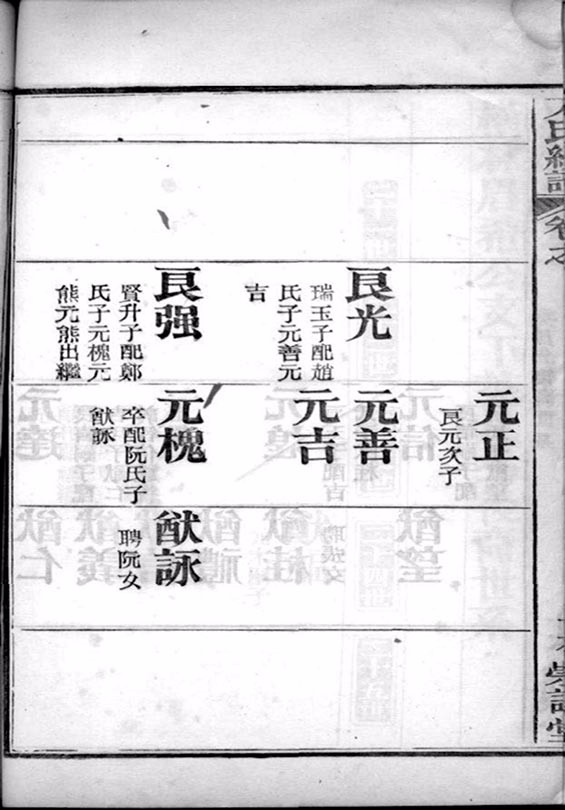 良光
瑞玉子配趙
氏子元善元
吉
良强
賢升子配鄭
氏子元槐元
熊元熊出繼
元正
良元次子
元善
元吉
元槐
卒配阮氏子
猷詠
猷詠
聘阮女